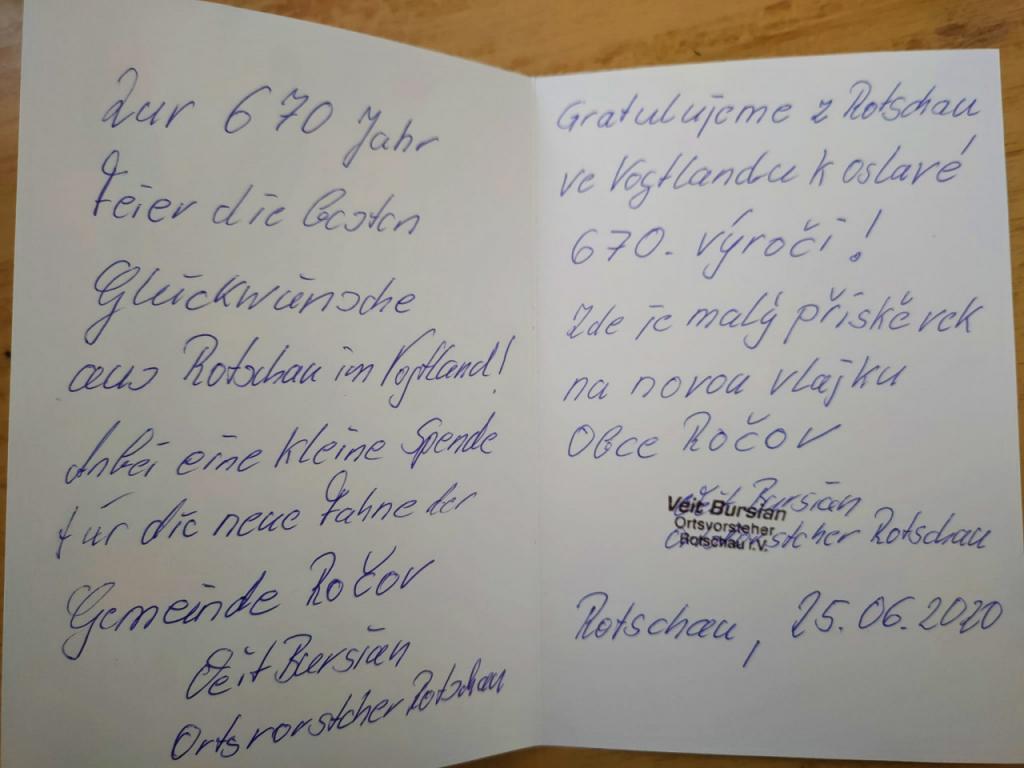 Zur 670 Jahr
Feier die besten
Glückwünsche
aus Rotschau im Vogtland!
Anbei eine kleine Spende
für die neue Fahne der
Gemeinde Ročov
Veit Bursian
Ortsvorsteher Rotschau
Gratulujeme z Rotschau
ve Vogtlandu k oslavé
670. výročí!
Zde je malý příské vek
na novou vlajku
Obce Ročov
Veit Bursian
Ortsvorsteher Rotschau
Veit Bursian
Ortsvorsteher
Rotschau i.V.
Rotschau, 25.06.2020